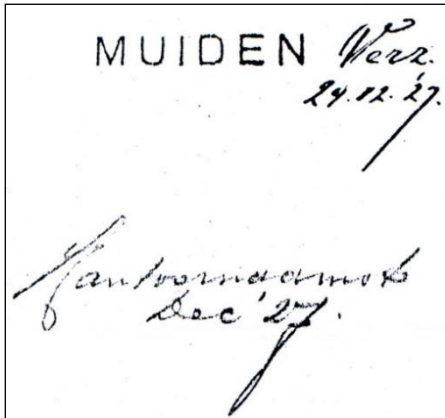 MUIDEN Verz.
24.12.'27.
Kantoornaamst
Dec '27.